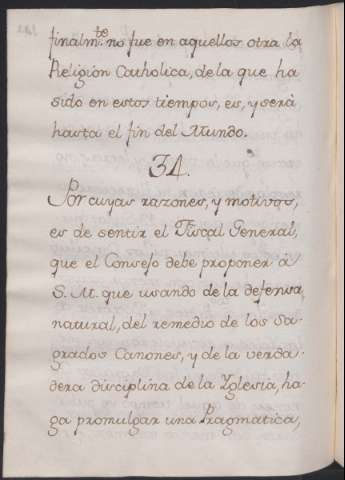 finalmte. no fue en aquellos otra la
Religión Catholica, de la que ha
sido en estos tiempos, es, y será
hasta el fin del Mundo.
34.
Por cuyas razones, y motivos,
es de sentir el Fiscal General,
que el Consejo debe proponer à
S. M. que usando de la defensa
natural, del remedio de los Sa-
grados Canones, y de la verda-
dera disciplina de la Yglesia, ha-
ga promulgar una Pragmatica,